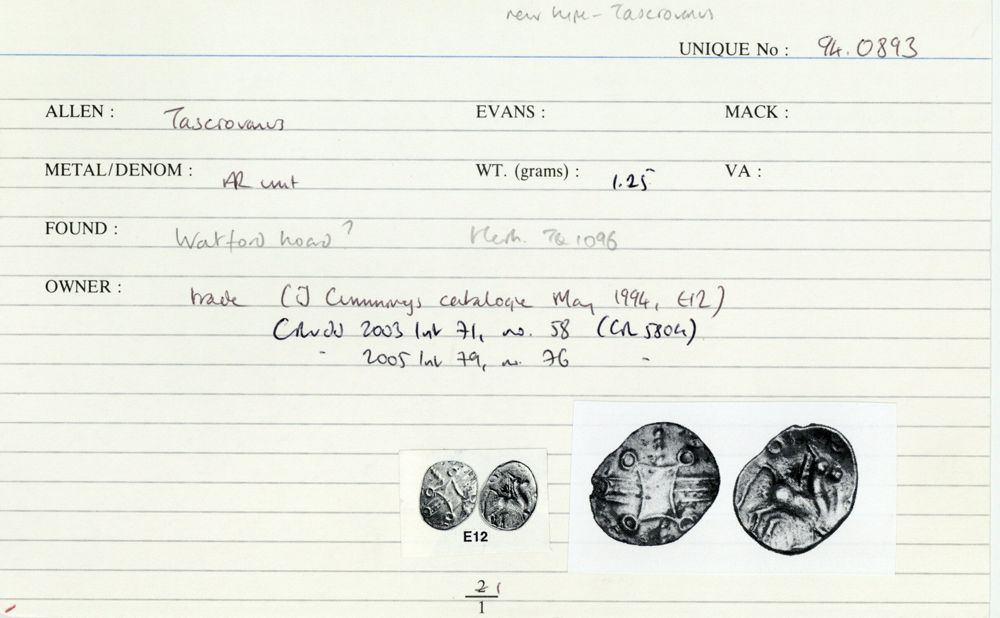 new type - Tasciovanus
UNIQUE No : 94.0893
ALLEN : Tasciovanus EVANS : MACK :
METAL/DENOM : AR unit WT. (grams) : 1.25 VA :
FOUND : Watford hoard? Herts. TQ 1096
OWNER : trade (J Cummings catalogue May 1994, E12)
2003 list 71, no. 58 (CR 580G)
" 2005 list 79, no. 76 "
E12
2 1
1